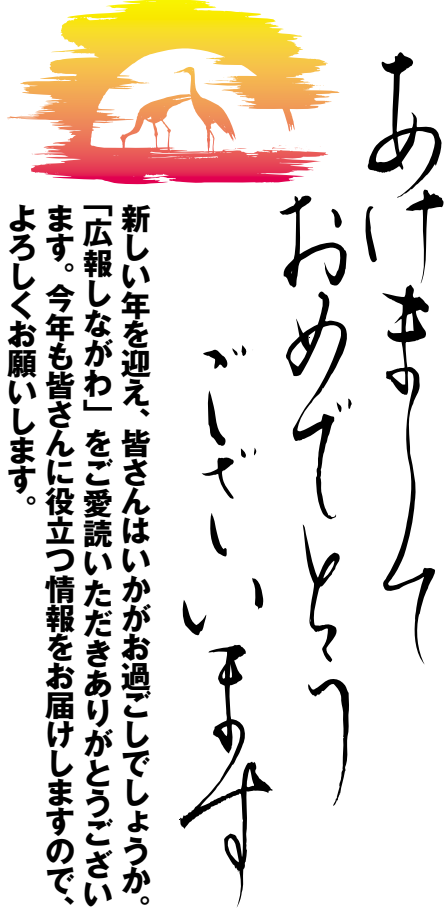 あけまして
おめでとう
ございます
新しい年を迎え、皆さんはいかがお過ごしでしょうか。
「広報しながわ」をご愛読いただきありがとうござい
ます。今年も皆さんに役立つ情報をお届けしますので、
よろしくお願いします。